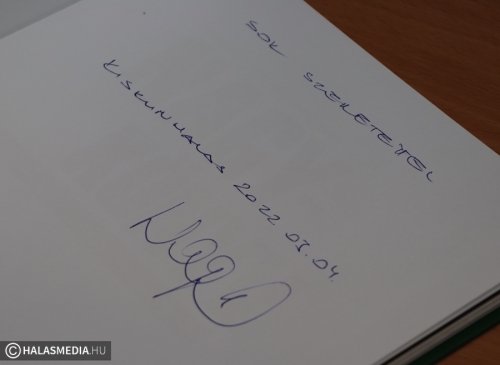 SOK SZERETETTEL
KISKUNHALAS 2022.03.04.
© HALASMEDIA.HU